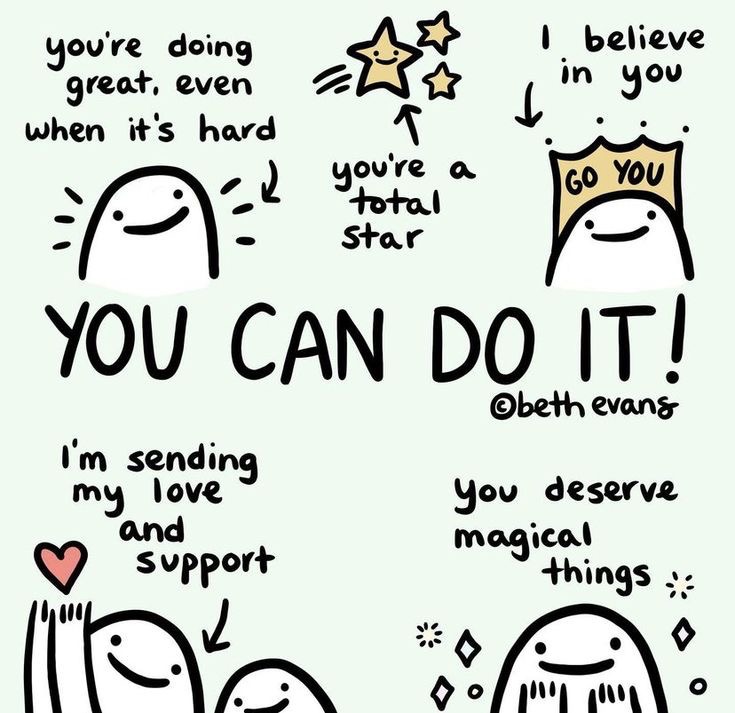 you're doing
great, even
when it's hard
you're a
total
star
I believe
in you
GO YOU
YOU CAN DO IT!
©beth evans
I'm sending
my love
and
support
you deserve
magical
things